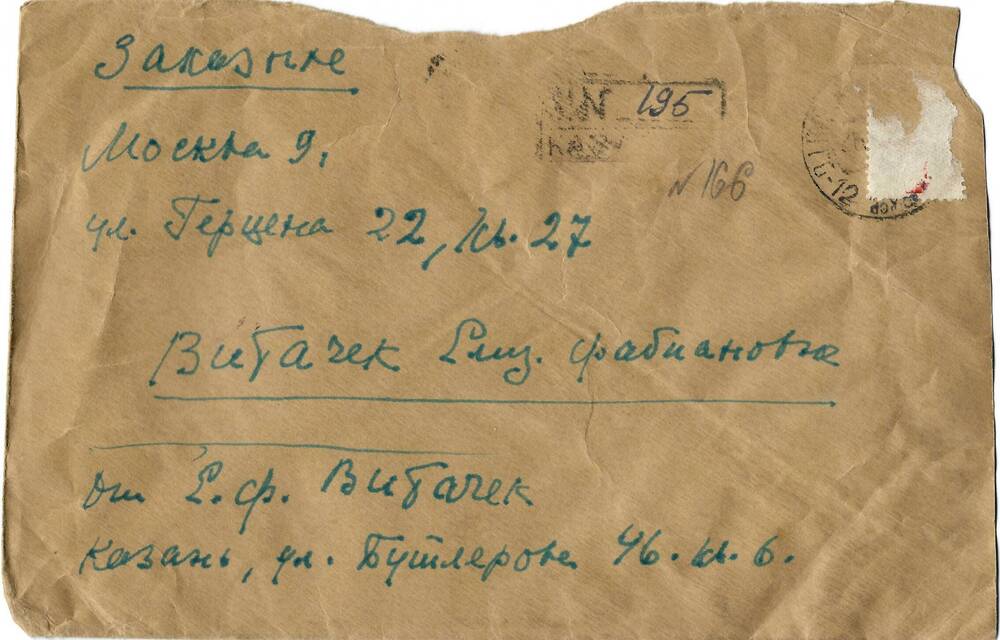 Заказное
№ 195
Москва 9,
№ 166
ул. Герцена 22, кв. 27
Витачек Елиз. Фабиановна
от Е. Ф. Витачек
Казань, ул. Бутлерова 46. кв. 6.